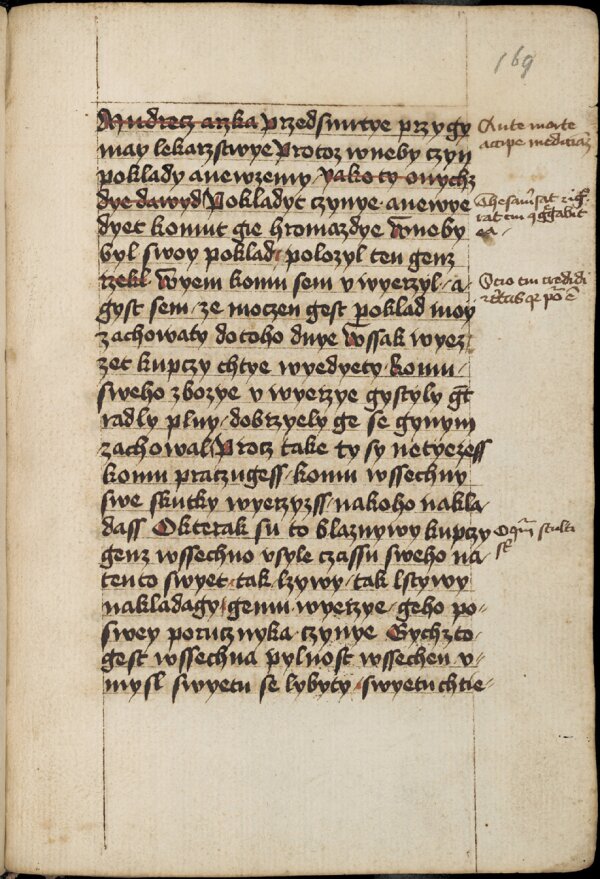 169
Mudrecz arzka przedsmrtye przygy
may lekarzstwye Protoz wneby czyn
poklady anewzemy yako ty onychz
dye dawyd Pokladyt czynye anewye
dyet komut gie hromazdye Wneby
byl swoy poklad polozyl ten genz
rzekl Wyem komu sem v wyerzyl a
gyst sem ze moczen gest poklad moy
zachowaty dotoho dnye Wssak wyez
zet kupczy chtye wyedyety komu
sweho zbozye v wyerzye gystyly gt
radly plny dobrzyely ge se gynym
zachowal Procz take ty sy netyezess
komu praczugess komu wssechny
swe skutky wyerzyzss nakoho nakla
dass Okterak su to blaznywy kupczy
genz wssechno vsyle czassu sweho na
tento swyet tak lzywy tak lstywy
nakladagy gemu wyerzye geho po
swey porucznyka czynye Bychzto
gest wssechna pylnost wssechen v
mysl swyetu se lybyty swyetu chtie
Ante morte
accipe mediciam
Thesaurisat
ea
Scio cui credidi
O quam stulti